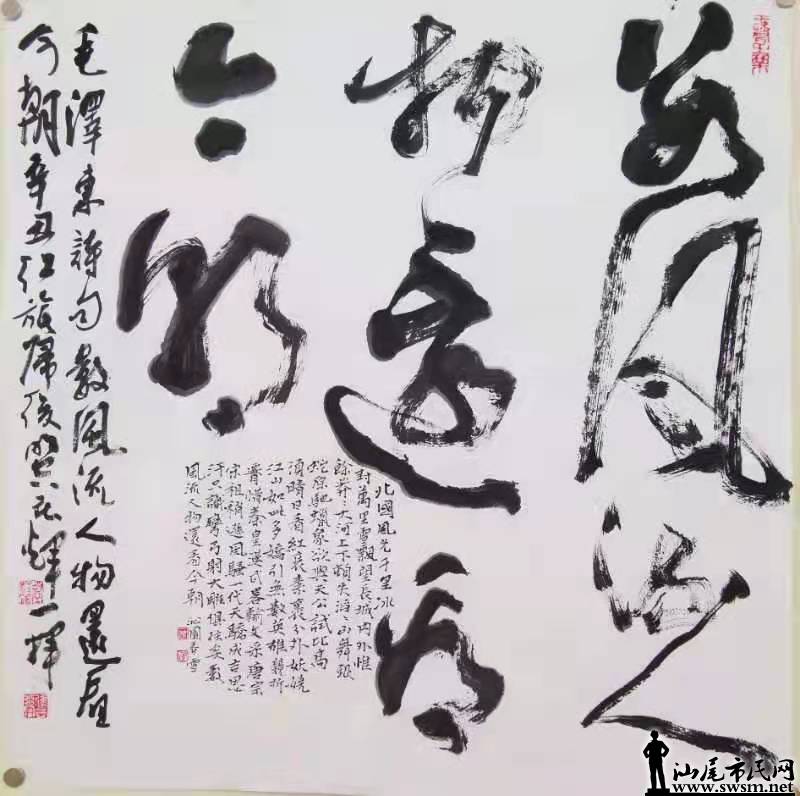 数风流人
物还看
今朝
北國風光千里冰
封萬里雪飄望長城內外惟
餘莽〻大河上下頓失滔〻山舞銀
蛇原馳蠟象欲與天公試比高
須晴日看紅裝素裹分外妖嬈
江山如此多嬌引無數英雄競折
腰惜秦皇漢武略輸文采唐宗
宋祖稍遜風騷一代天驕成吉思
汗只識彎弓射大雕俱往矣數
風流人物還看今朝 沁園春雪
毛澤東詩句數風流人物還看
今朝辛丑 輝一揮
汕尾市民网
www.swsm.net